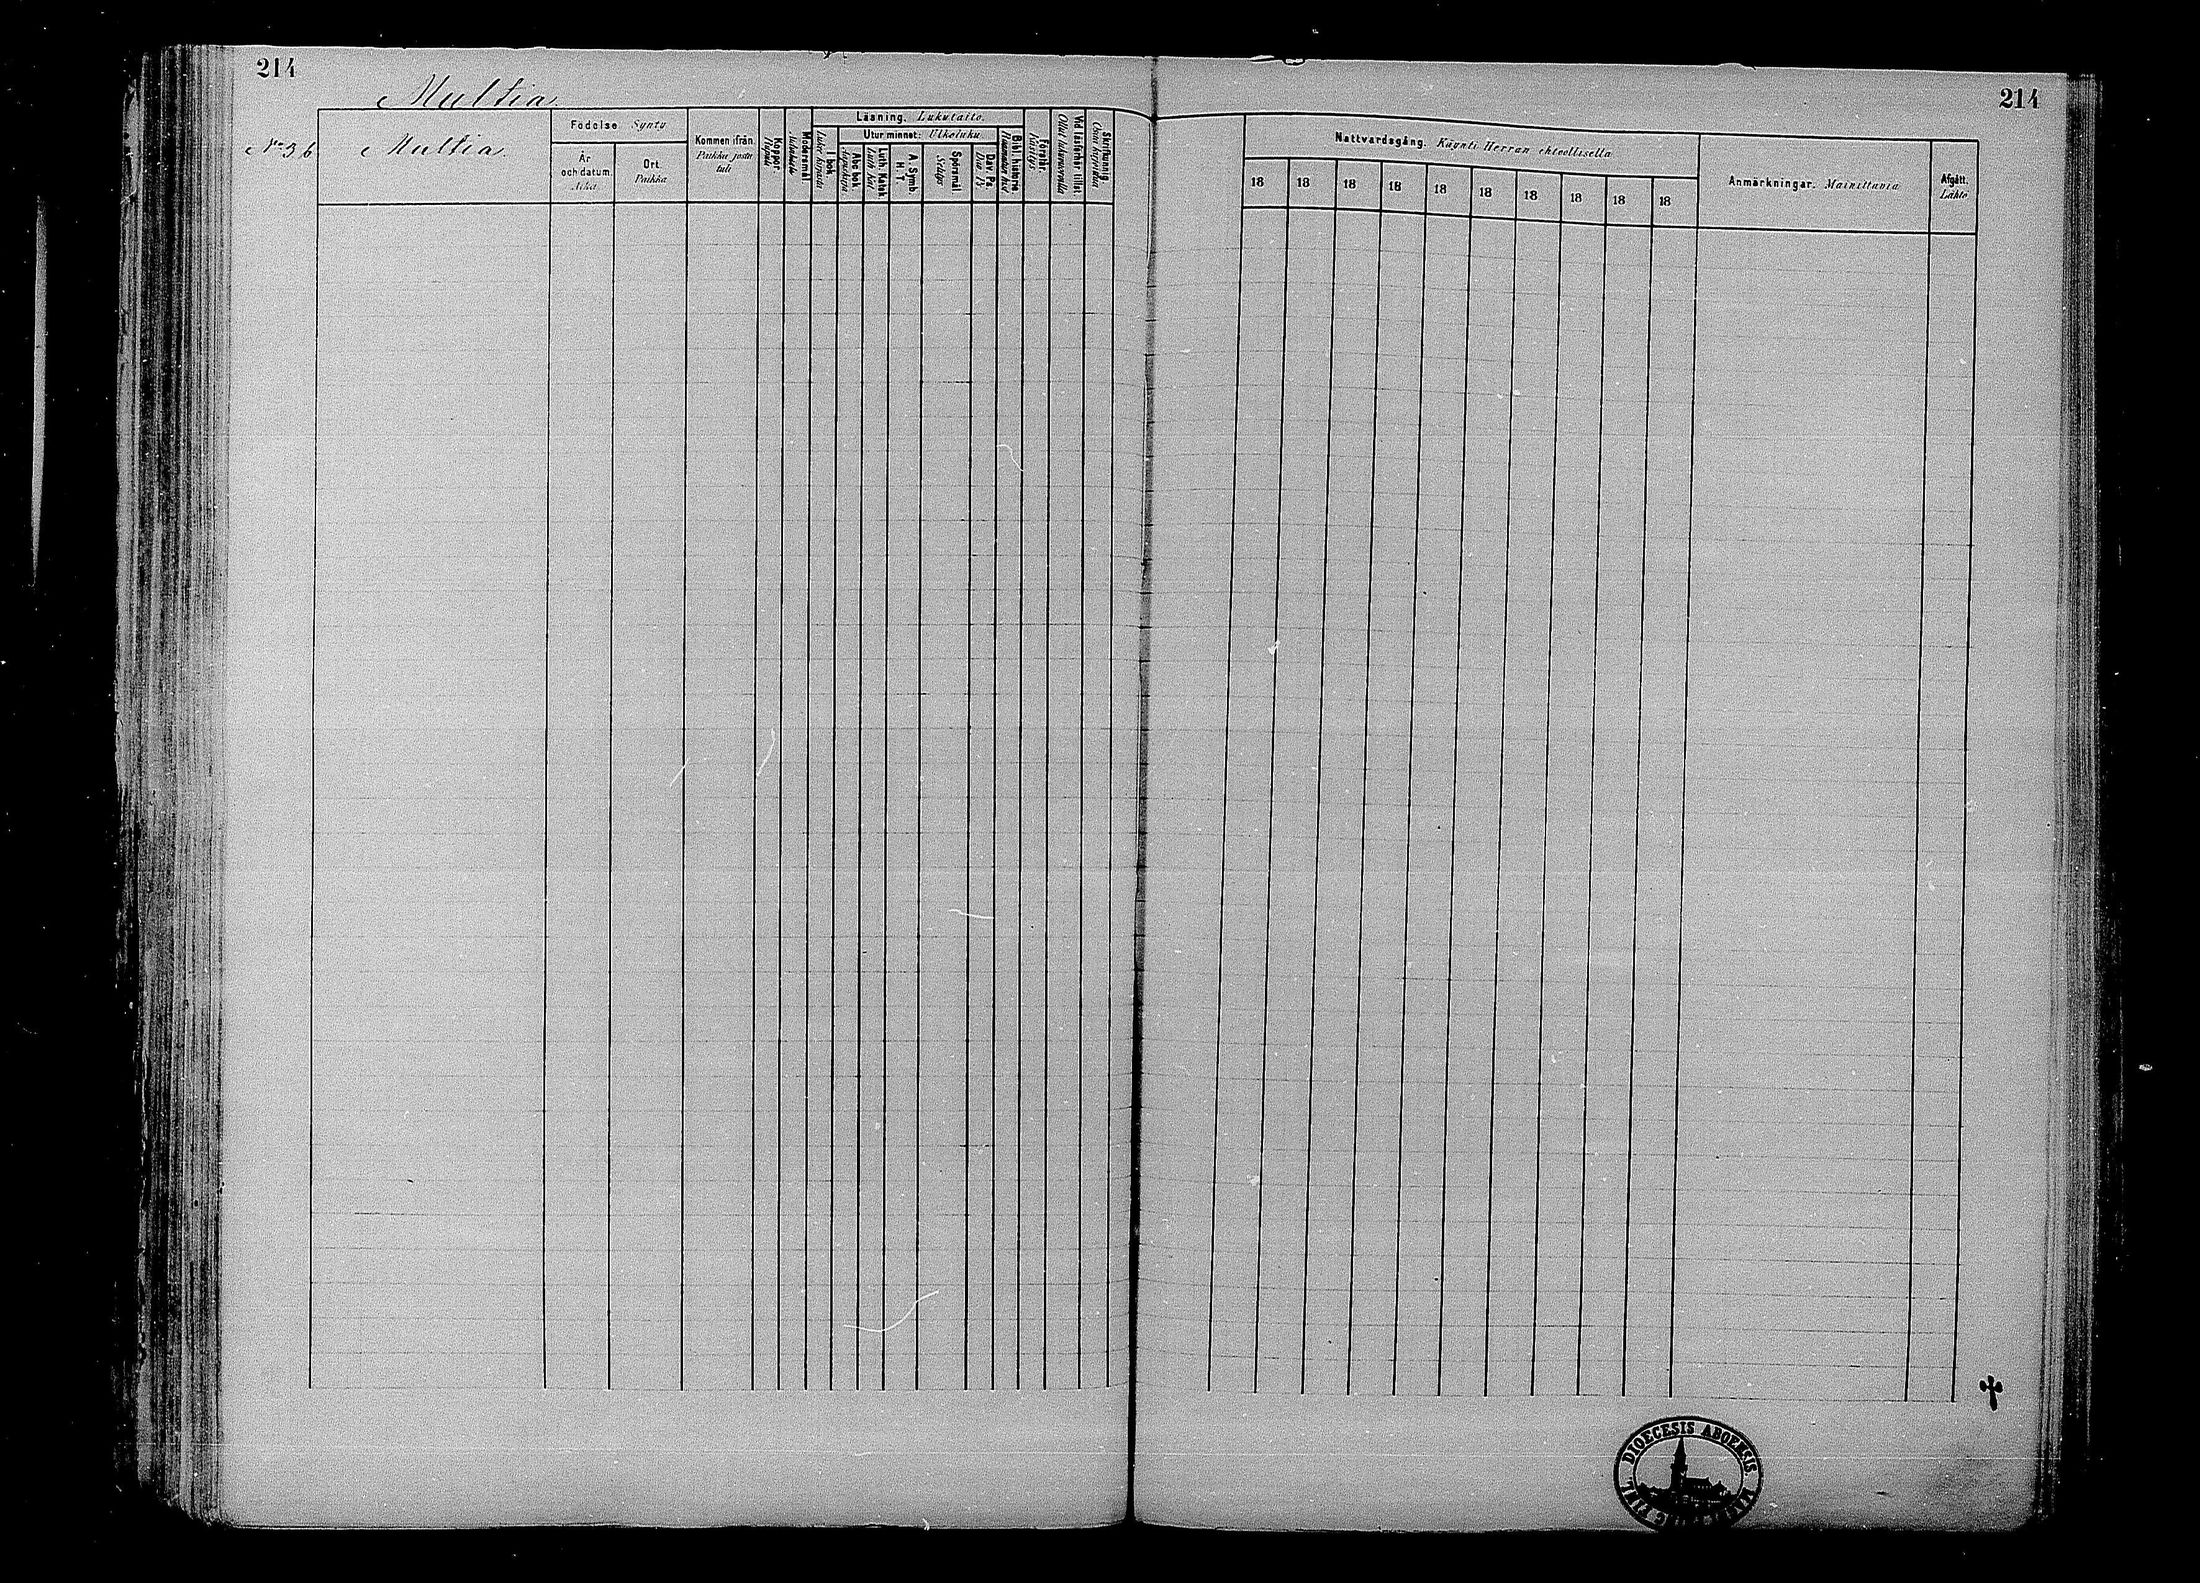 214
214
Multia
Nº 36
Multia.
Födelse Synty
År och datum. Aika
Ort. Paikka
Kommen ifrån. Paikka josta tuli
Koppor. Rupuli
Modersmål
Läsning. Lukutaito.
I bok
Utur minnet: Ulkoluku.
Abc bok Aapiskirja
Luth. Katek. Luth. Kat.
A. Symb. H. T.
Spörsmål Selitys
Dav. Ps. Dav. Ps.
Bibl. historie.
Förstår. Käsitys
Vid läsförhör tillst. Ollut lukuwuorolla
Skriftunnig.
Nattvardsgång. Käynti Herran ehtoollisella
18 18 18 18 18 18 18 18 18 18
Anmärkningar. Mainittavia
Afgått. Lähtö
DIOECESIS ABOENSIS